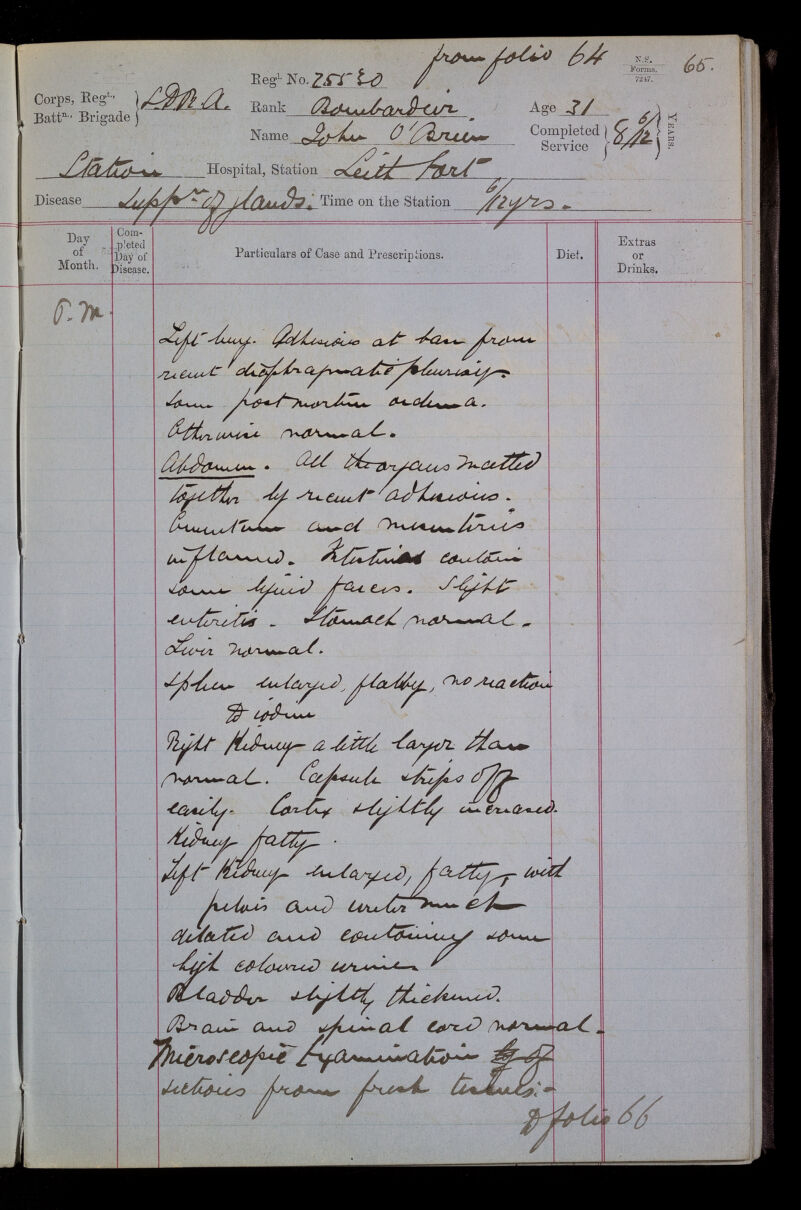 from folio 64
N.S.
Forms.
7247.
65.
Corps, Regt.,
Battn., Brigade
S.D.R.A.
Regl. No. 75530
Rank Bombardier
Name John O'Brien
Age 31
Completed
Service
8 6/12
YEARS.
Station Hospital, Station Leith Fort
Disease Suppn. of glands. Time on the Station 6/12 yrs.
Day
of
Month.
Com-
pleted
Day of
Disease.
Particulars of Case and Prescriptions.
Diet.
Extras
or
Drinks.
P.M.
Left lung. Adhesions at base from
recent diaphragmatic pleurisy.
Some post mortem oedema.
Otherwise normal.
Abdomen. All the organs matted
together by recent adhesions.
Omentum and mesenteries
inflamed. Intestines contain
some liquid faeces. Slight
enteritis. Stomach normal.
Liver normal.
Spleen enlarged, flabby, no reaction
to iodine
Right Kidney a little larger than
normal. Capsule strips off
easily. Cortex slightly increased.
Kidney fatty.
Left Kidney enlarged, fatty, with
pelvis and ureter much
dilated and containing some
high coloured urine.
Bladder slightly thickened.
Brain and spinal cord normal.
Microscopic Examination by of
sections from fresh tissues:-
To folio 66